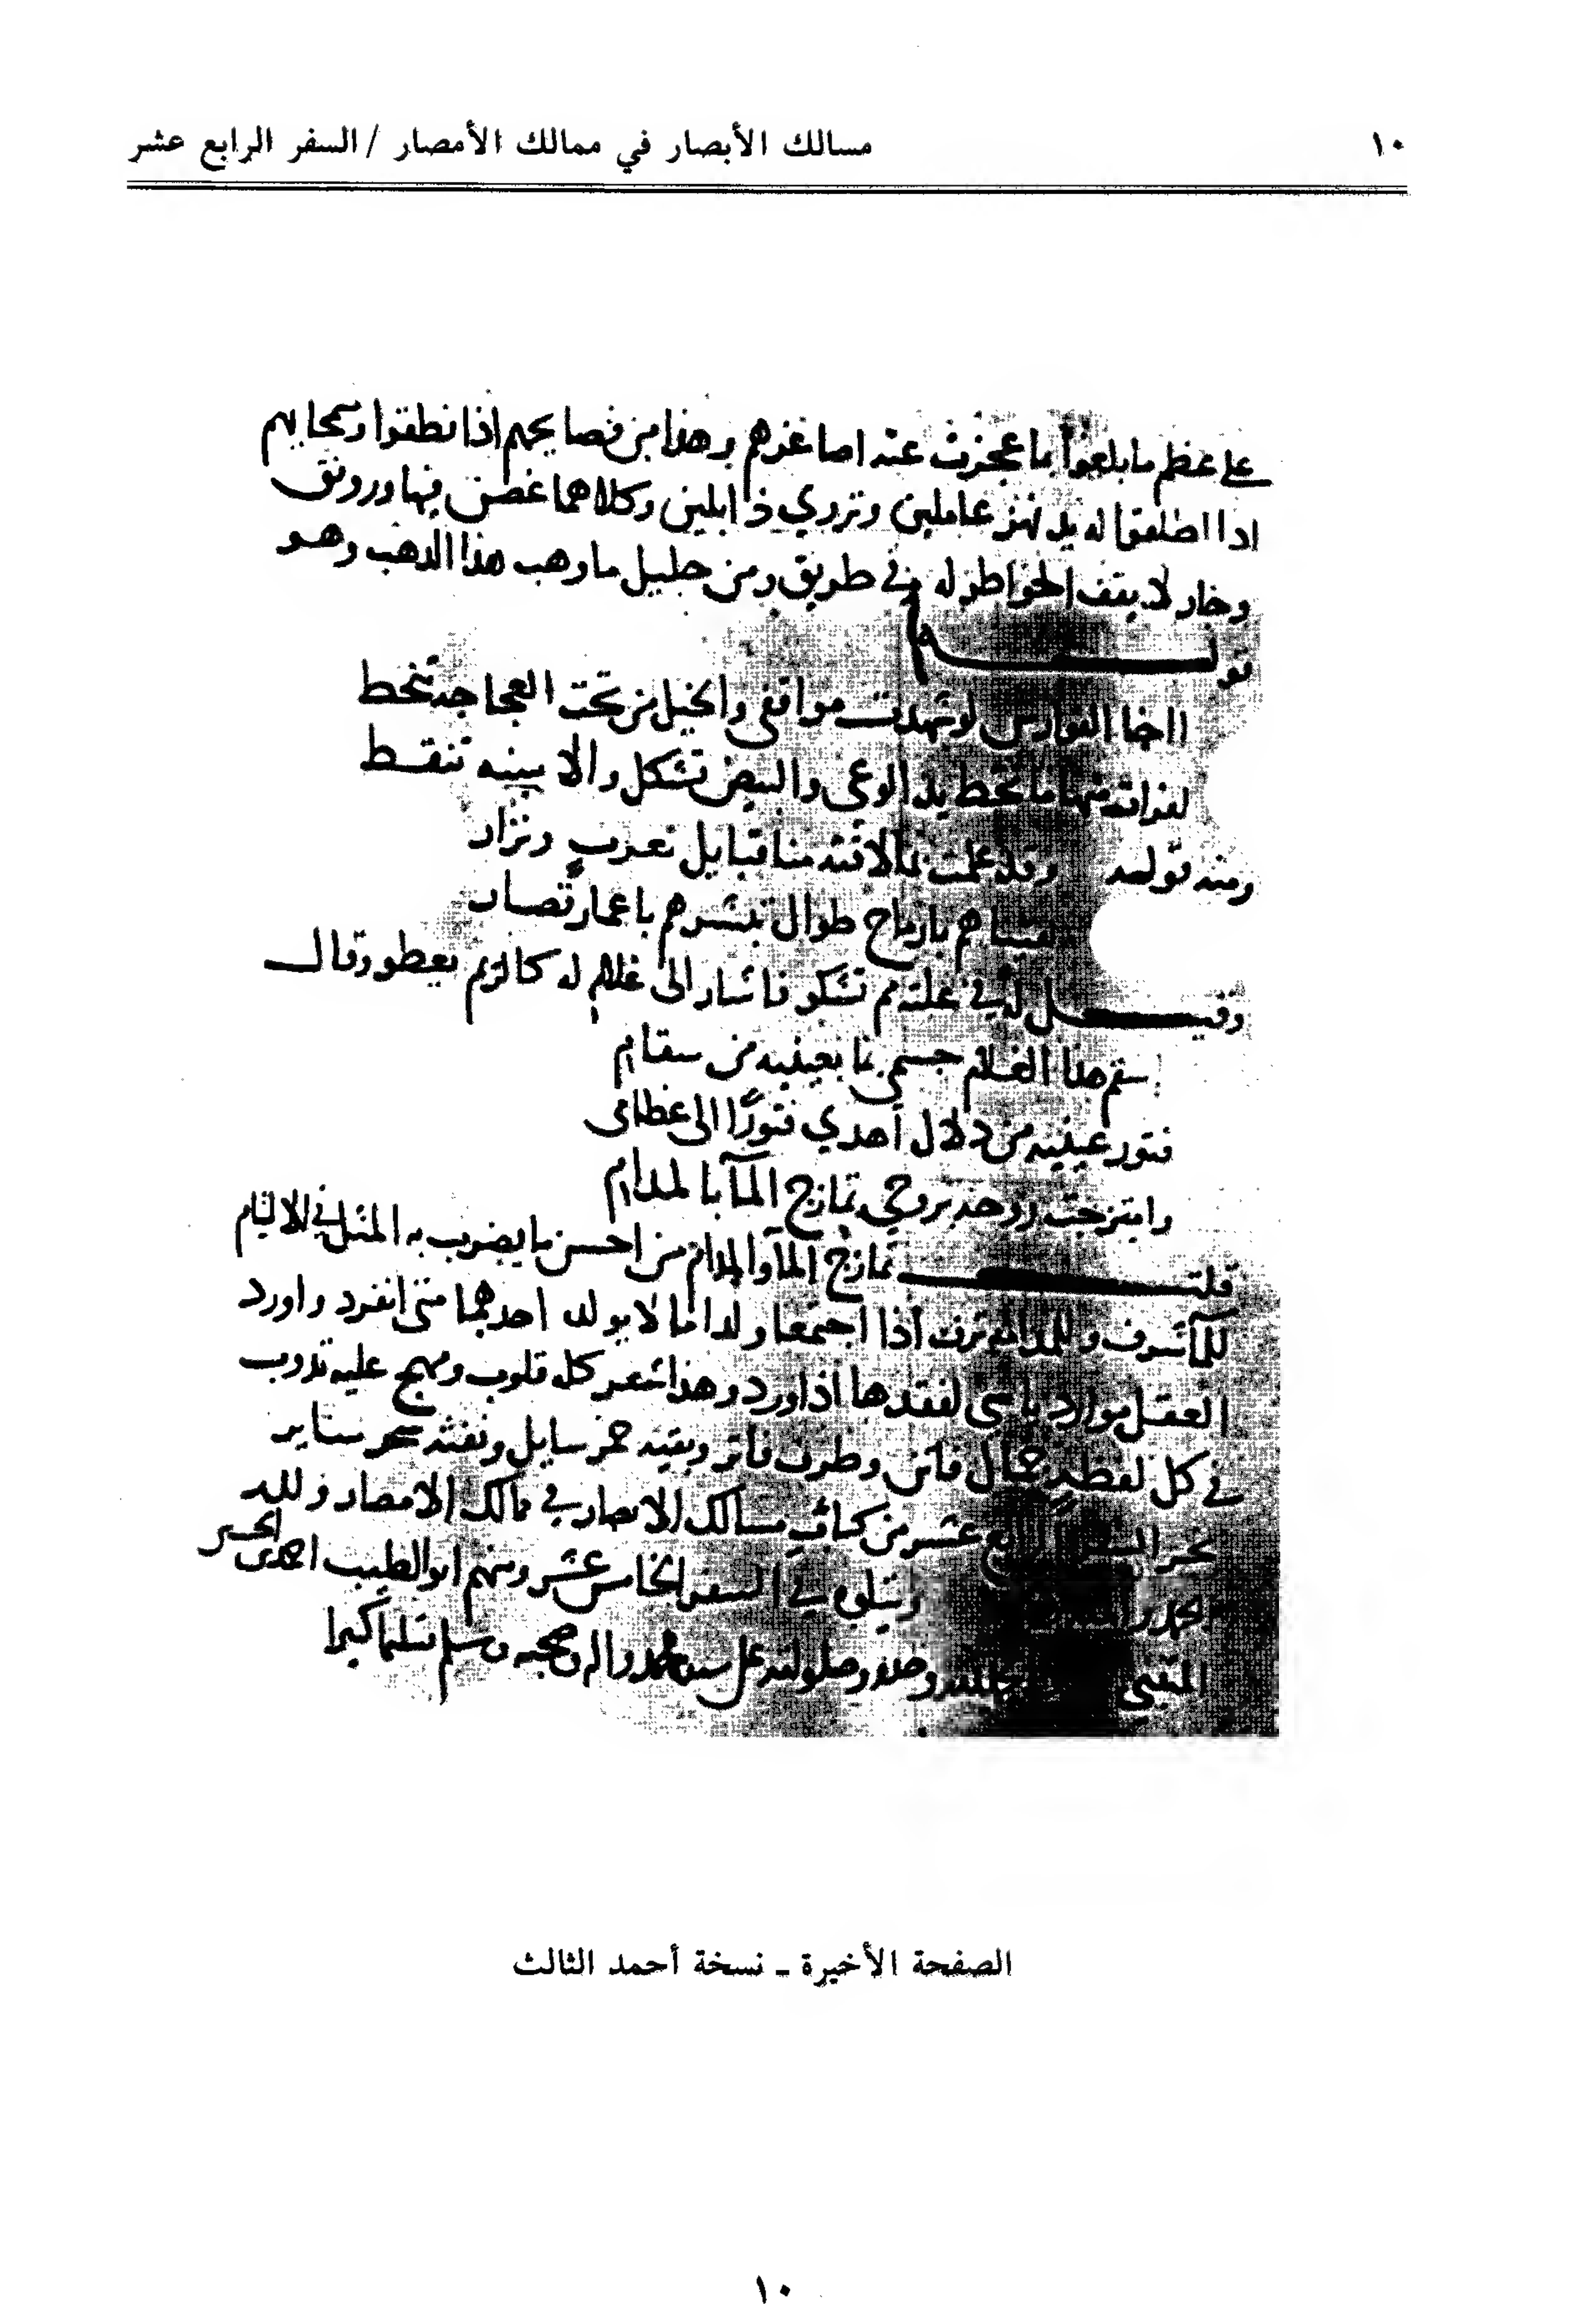 ١٠
مسالك الأبصار في ممالك الأمصار / السفر الرابع عشر
على عظم ما بلغوا بما عجزت عنه اصاغرهم وهذا من فصايحهم اذا نطقوا وسحايبهم
اذا اطلقوا له يد تهز عاملين وتروي ذابلين وكلاهما غصن فيها وريق
وخار لا يقف الخواطر له في طريق ومن جليل ما وهب هذا الذهب وهو
قوله
ااخا الفوارس لو شهدت مواقفي والخيل من تحت العجاجة تنحط
لقرات منها ما تخط يد الوغى والبيض تشكل والاسنة تنقط
ومنه قوله وقد علمت بما لاقته منا قبايل يعرب ونزار
لقيناهم بارماح طوال تبشرهم باعمار قصار
وقيل له في علته مم تشكو فاشار الى غلام له كالريم يعطو وقال
سقم هذا الغلام جسمي بما بعينيه من سقام
فتور عينيه من دلال أهدى فتورًا الى عظامي
وامتزجت روحه بروحي تمازج المآ بالمدام
قلت تمازج المآ والمدام من احسن ما يضرب به المثل في الالتيام
للمآ شرف وللمدامة ترف اذا اجتمعا ولدا ما لا يولد احدهما متى انفرد واورد
العقل موارد ياسى لفقدها اذا ورد وهذا شعر كل قلوب ومهج عليه تذوب
في كل لفظة جمال فاتن وطرف فاتر وبقية خمر سايل ونفثة سحر ساير
نجز السفر الرابع عشر من كتاب مسالك الابصار في ممالك الامصار ولله
الحمد ويتلوه في السفر الخامس عشر ومنهم ابو الطيب احمد بن الحسين
المتنبي وحده وصلواته على سيدنا محمد واله وصحبه وسلم تسليما كثيرا
الصفحة الأخيرة - نسخة أحمد الثالث
١٠